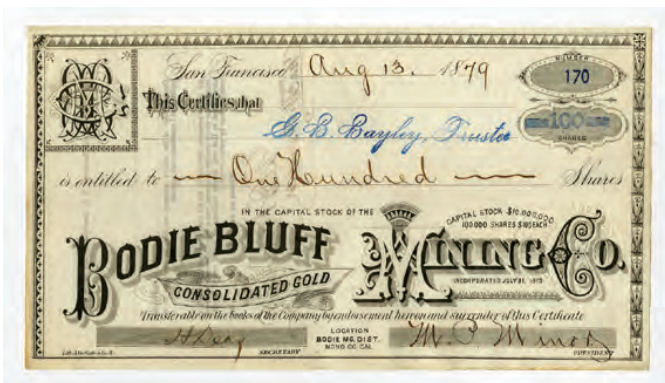 San Francisco Aug 13. 1879
NUMBER
170
This Certifies that
100
SHARES
G. B. Bayley, Trustee
is entitled to One Hundred Shares
IN THE CAPITAL STOCK OF THE
CAPITAL STOCK $10,000,000
100000 SHARES $100 EACH
BODIE BLUFF
CONSOLIDATED GOLD
MINING CO.
INCORPORATED JULY
Transferable on the books of the Company by endorsement hereon and surrender of this Certificate
LOCATION
BODIE MG. DIST.
MONO CO. CAL.
SECRETARY
PRESIDENT